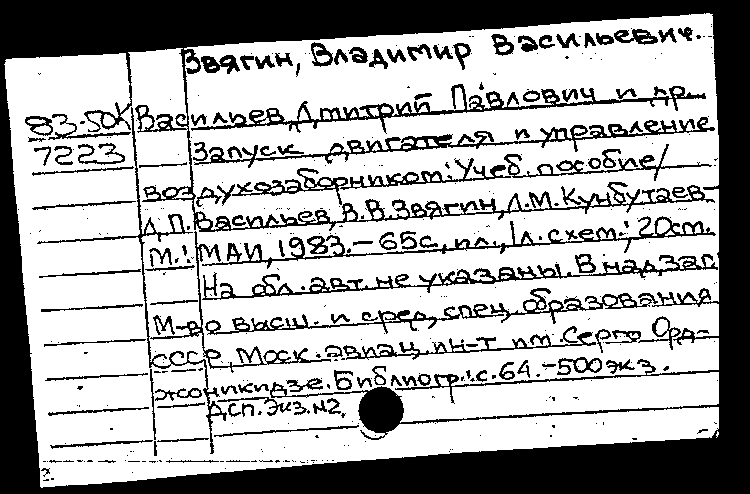 Звягин, Владимир Васильевич.
83-50К Васильев, Дмитрий Павлович и др.
7223 Запуск двигателя и управление
воздухозаборником: Учеб. пособие/
Д.П. Васильев, В.В. Звягин, Л.М. Кунбутаев-
М.: МАИ, 1983.- 65с., ил., 1л. схем.; 20см.
На обл. авт. не указаны. В надзаг.
М-во высш. и сред. спец. образования
СССР, Моск. авиац. ин-т им. Серго Орд-
жоникидзе. Библиогр.: с. 64. - 500 экз.
ДСП. Экз. N2.